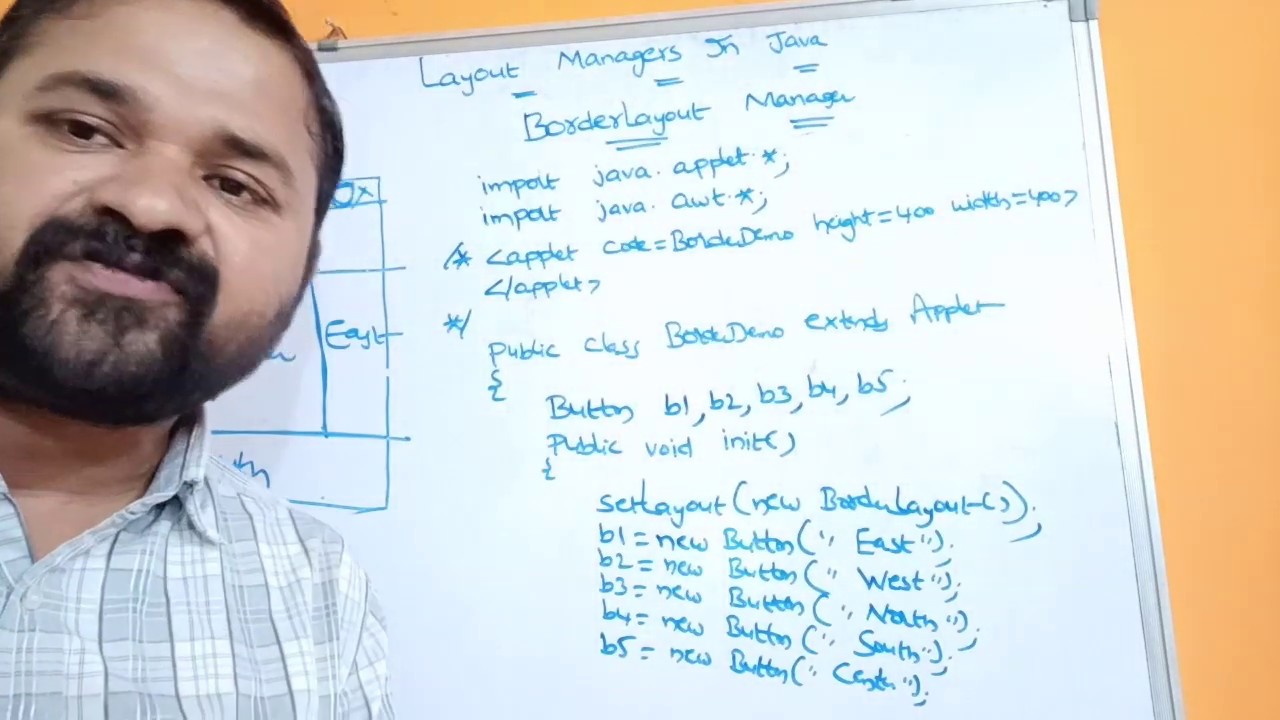 Layout Managers In Java
BorderLayout Manager
import java.applet.*;
import java.awt.*;
/* <applet code=BorderDemo height=400 width=400>
</applet>
*/
public class BorderDemo extends Applet
{
Button b1,b2,b3,b4,b5;
Public void init()
{
setLayout(new BorderLayout());
b1=new Button("East");
b2=new Button("West");
b3=new Button("North");
b4=new Button("South");
b5=new Button("Center");
East